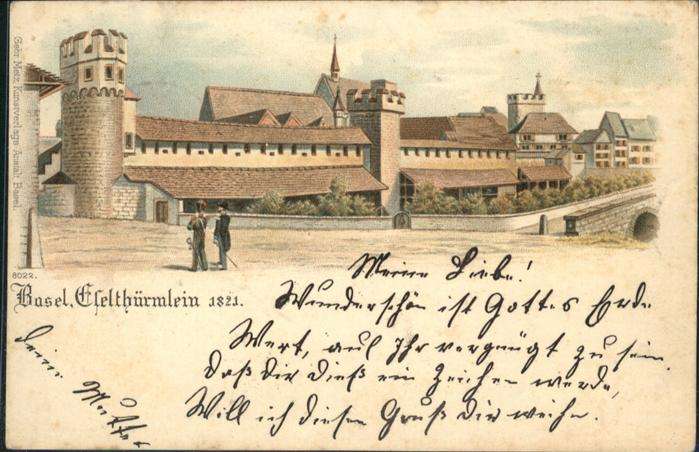 Gebr. Metz, Kunstverlags-Anstalt Basel.
8022.
Basel, Eselthürmlein 1821.
Meine Liebe!
Wunderschön ist Gottes Erde
Wert, auf Ihr vergnügt zu sein.
Daß dir dieß ein Zeichen werde,
Will ich diesen Gruß Dir weihn.